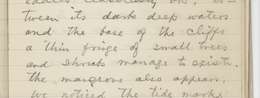 between its dark deep waters
and the base of the cliffs
a thin fringe of small trees
and shrubs manage to exist.
the mangroves also appear.
we noticed the tide marks